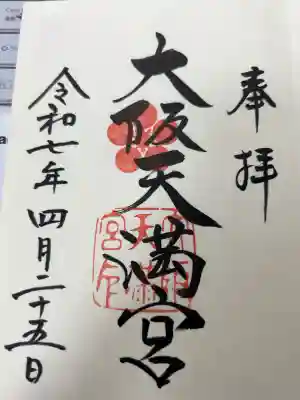 奉拝
大阪天満宮
令和七年四月二十五日